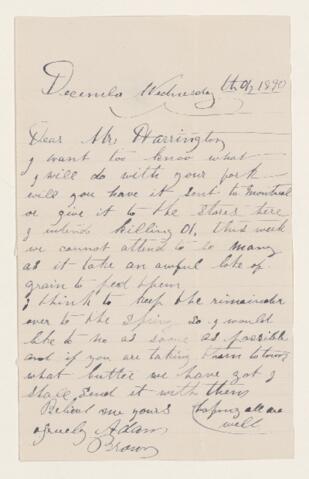 Decembr Wednesday 1890
Dear Mr Harrington
I want too know what
I will do with your pork
will you have it sent to Montreal
or give it to the stores here
I intend killing 01. this week
we cannot attend to to many
as it take an awful lote of
grain to feed them
I think to keep the remainder
over to the Spring so I would
like to no as some as possible
and if you are taking them to town
what butter we have got I
shall send it with them
Belive me yours hoping all are
Adam well
Brown